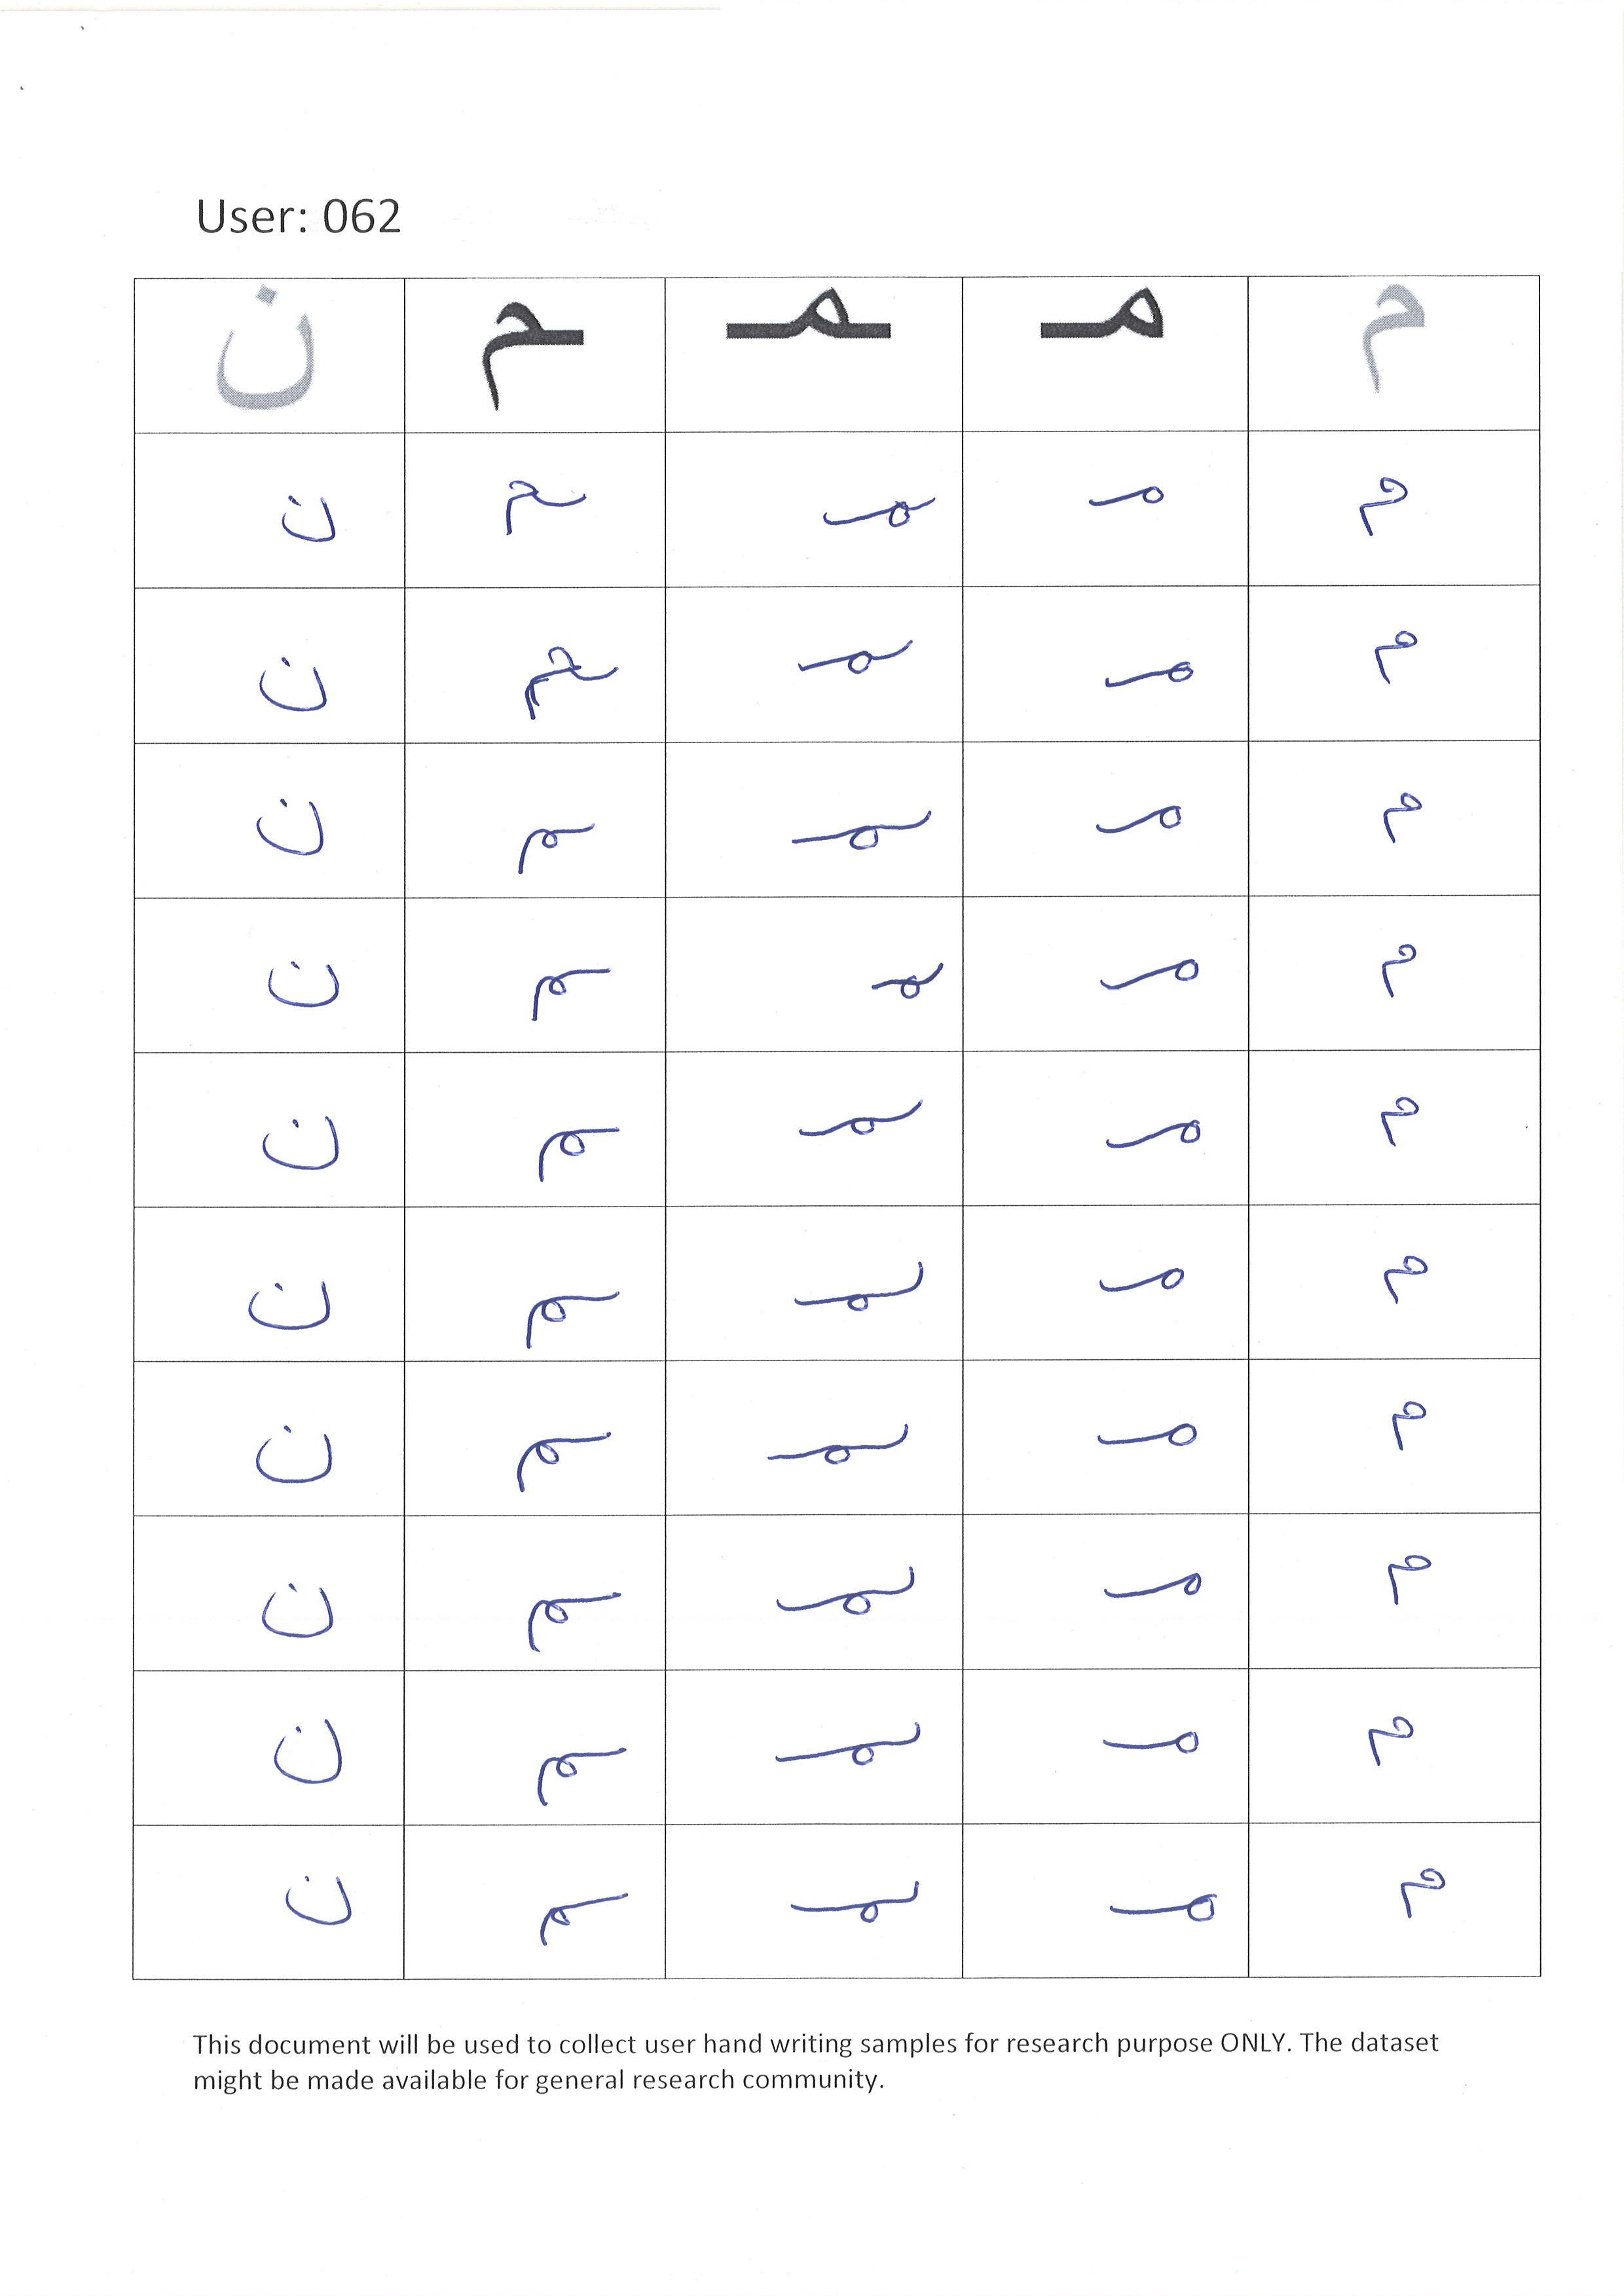 User: 062
م مـ ـمـ ـم ن
م مـ ـمـ ـم ن
م مـ ـمـ ـم ن
م مـ ـمـ ـم ن
م مـ ـمـ ـم ن
م مـ ـمـ ـم ن
م مـ ـمـ ـم ن
م مـ ـمـ ـم ن
م مـ ـمـ ـم ن
م مـ ـمـ ـم ن
م مـ ـمـ ـم ن
This document will be used to collect user hand writing samples for research purpose ONLY. The dataset
might be made available for general research community.